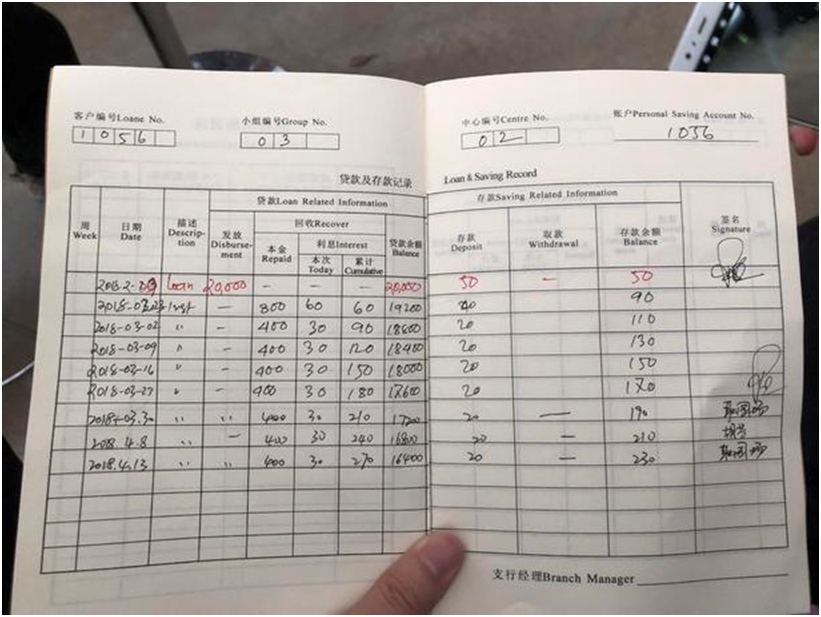 客户编号Loane No.
1056
小组编号Group No.
03
中心编号Centre No.
02
账户Personal Saving Account No.
1056
贷款及存款记录 Loan & Saving Record
贷款Loan Related Information 存款Saving Related Information
周 Week 日期 Date 描述 Description 发放 Disbursement 回收Recover 本金 Repaid 利息Interest 本次 Today 累计 Cumulative 贷款余额 Balance 存款 Deposit 取款 Withdrawal 存款余额 Balance 签名 Signature
loan 20,000 - - - 20,000 50 - 50
- 800 60 60 19200 40 90
2018-03-02 " - 400 30 90 18800 20 110
2018-03-09 " - 400 30 120 18400 20 130
2018-03-16 " - 400 30 150 18000 20 150
2018-03-27 " - 400 30 180 17600 20 170
2018-03.30 " " 400 30 210 17200 20 — 190
2018.4.8 " - 400 30 240 16800 20 - 210
2018.4.13 " " 400 30 270 16400 20 - 230
支行经理Branch Manager